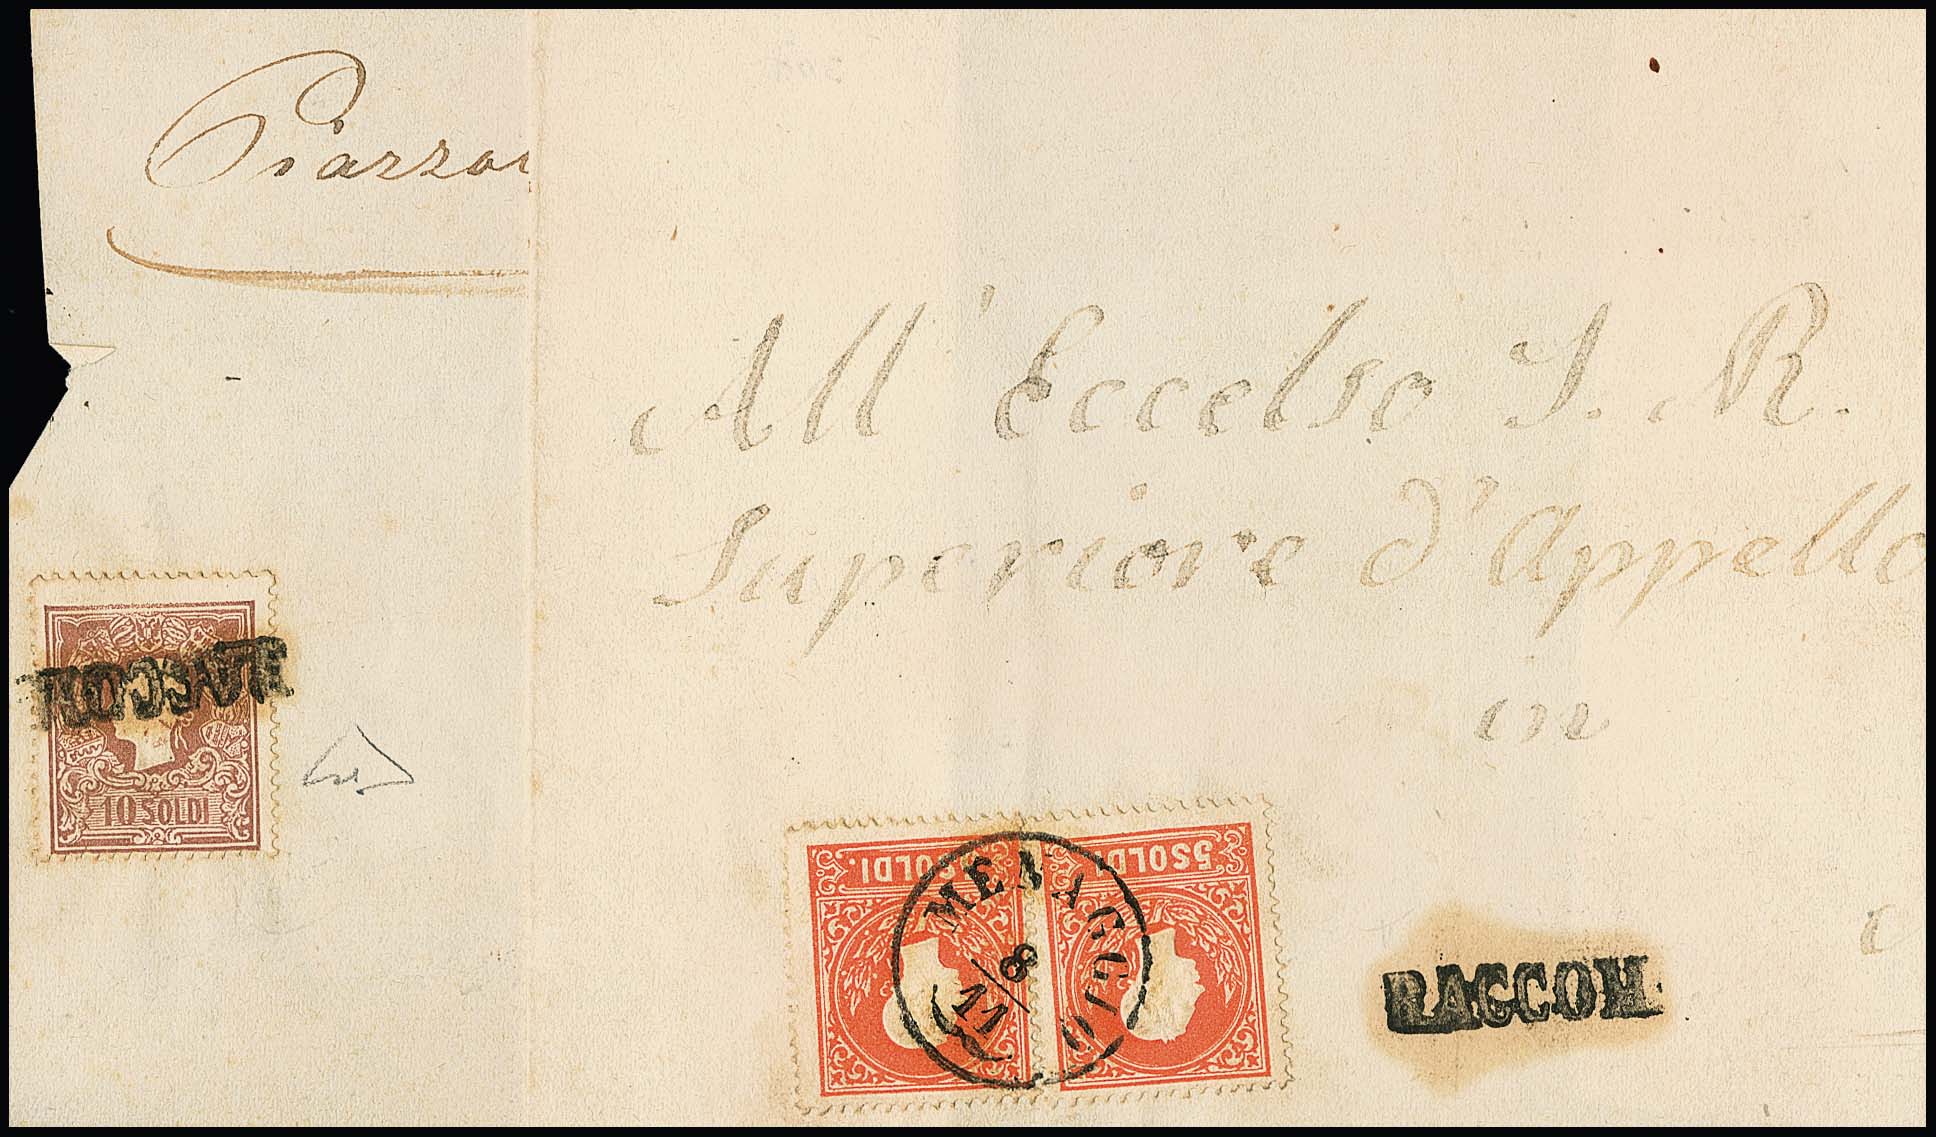 All' Eccelso I. R.
Superiore d'Appello
in
10 SOLDI
RACCOM
5 SOLDI
SOLDI.
MENAGGIO
8/11
RACCOM.